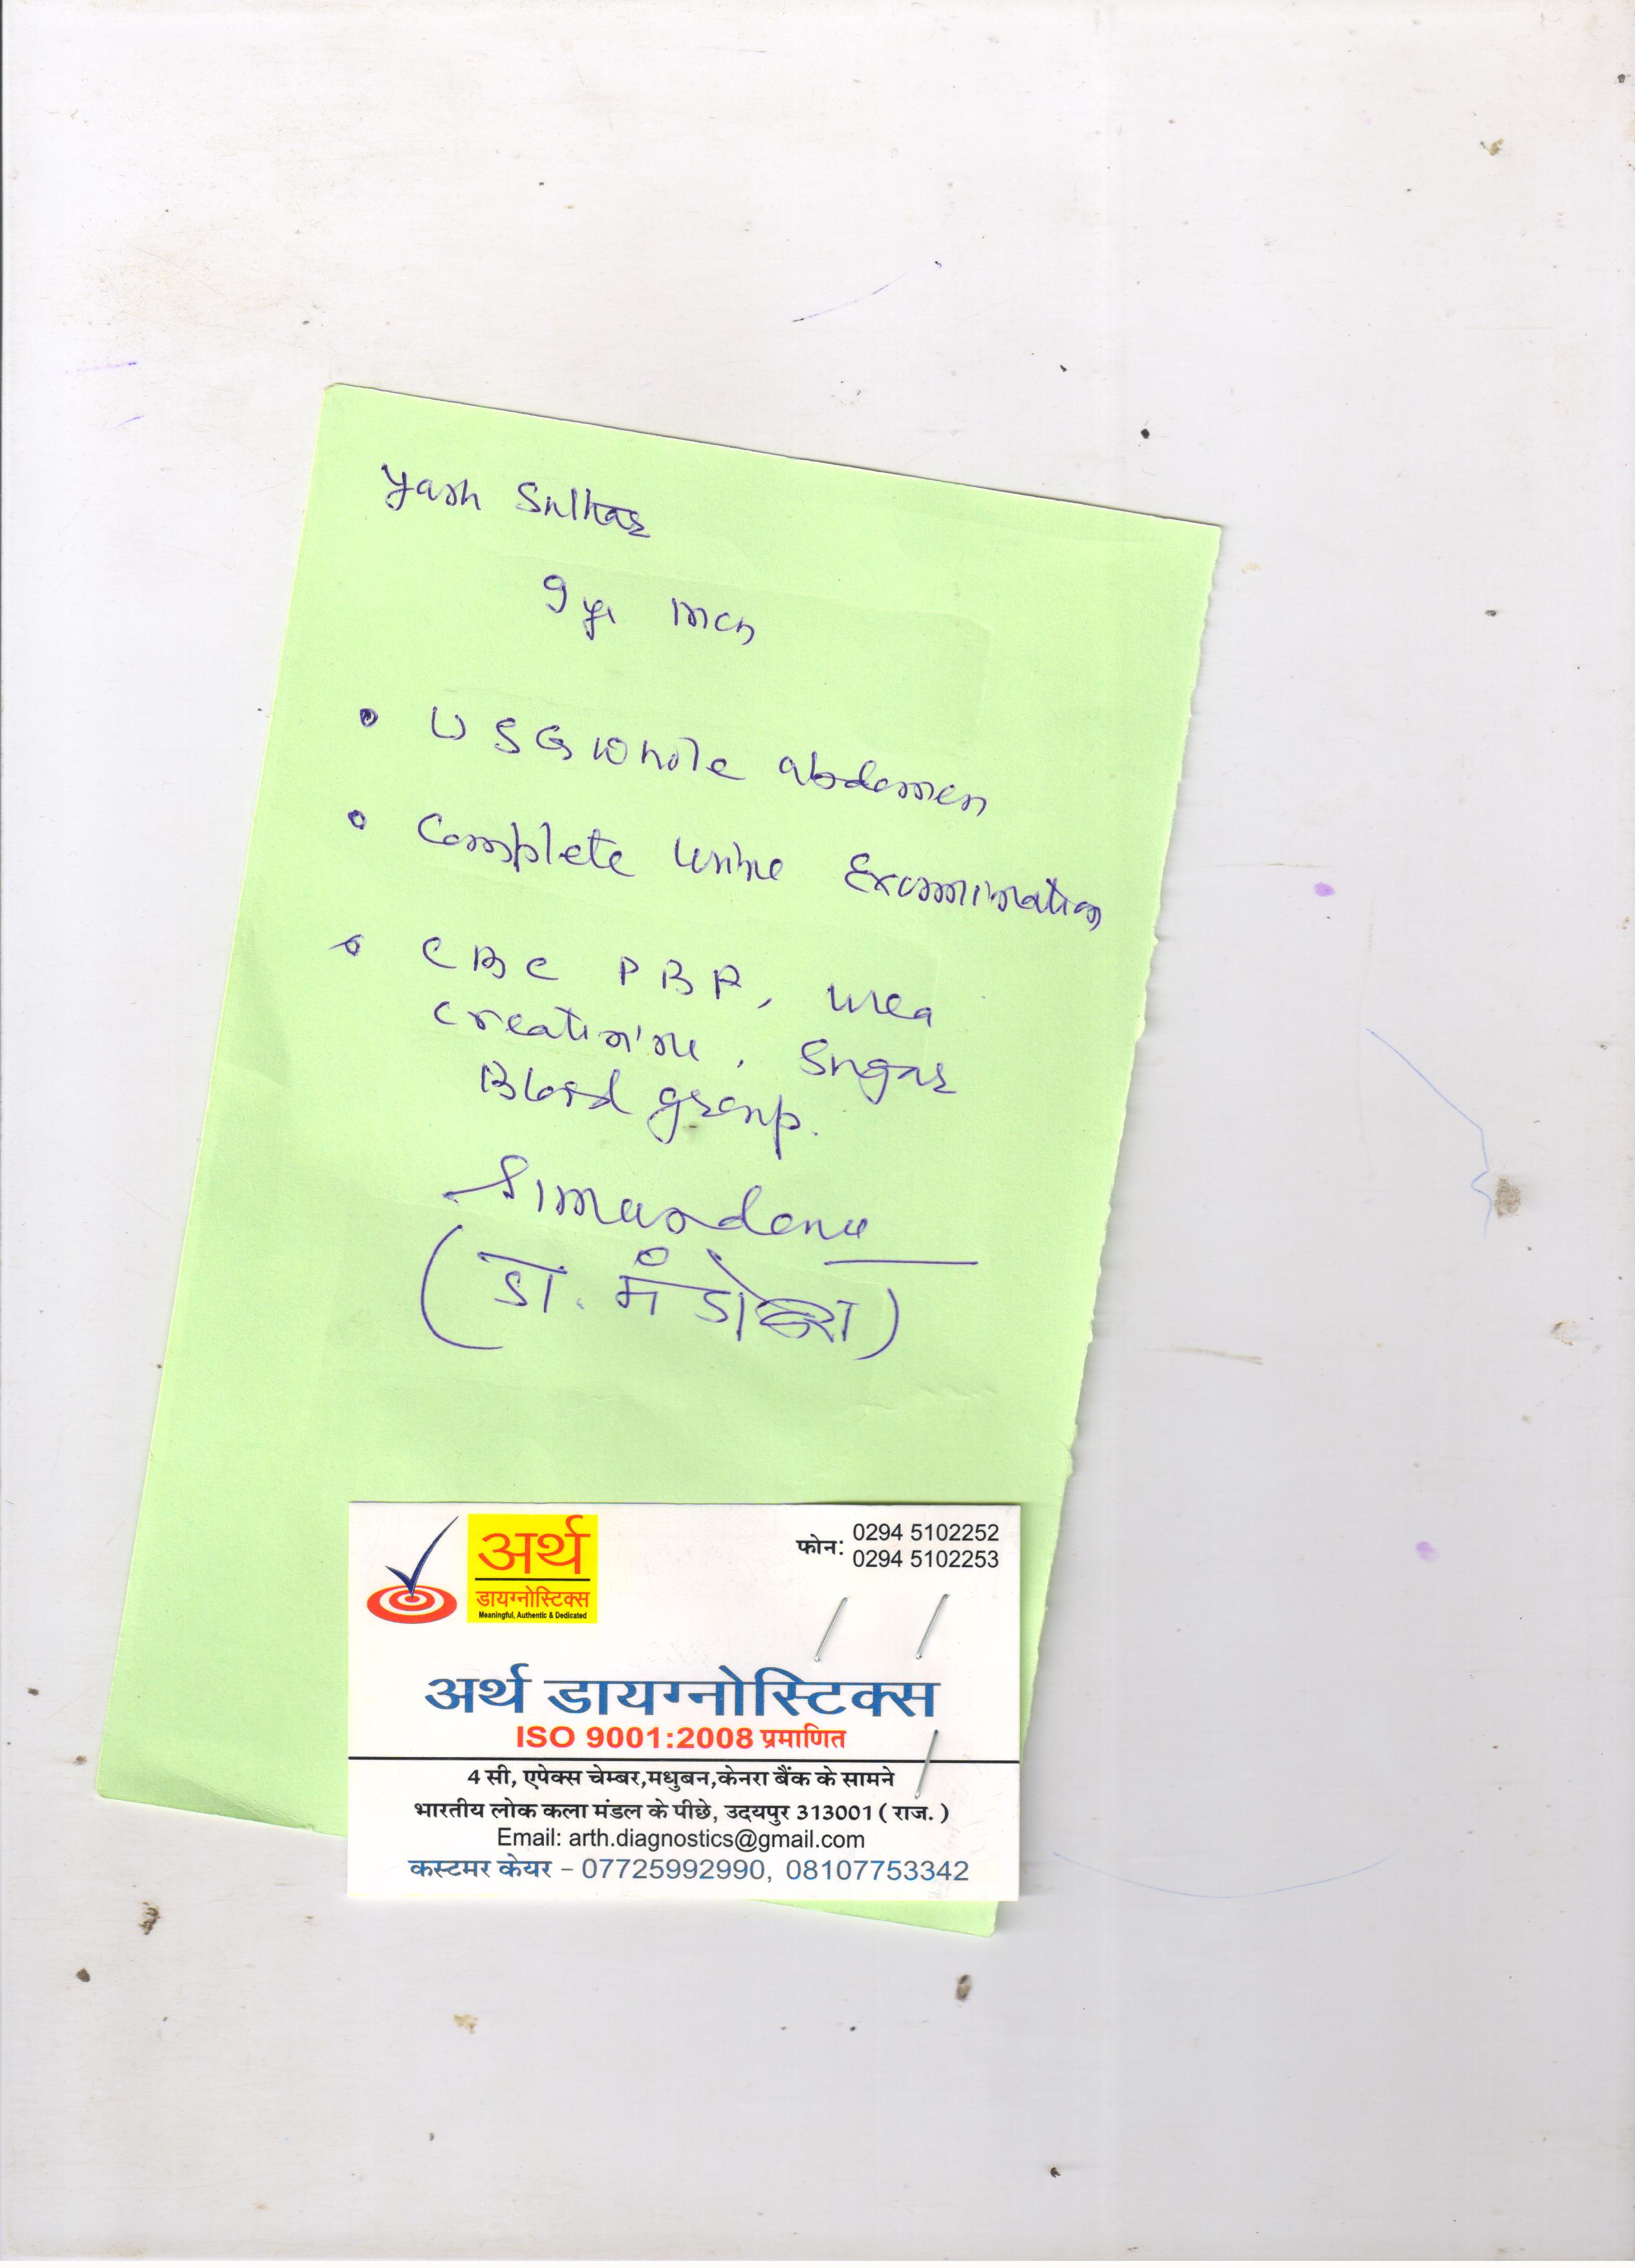 Yash
9 yr
• USG whole abdomen
• Complete Urine Examination
• CBC PBF, urea
creatinine, Sugar
Blood group.
(डा.
अर्थ
डायग्नोस्टिक्स
Meaningful, Authentic & Dedicated
फोन: 0294 5102252
0294 5102253
अर्थ डायग्नोस्टिक्स
ISO 9001:2008 प्रमाणित
4 सी, एपेक्स चेम्बर,मधुबन,केनरा बैंक के सामने
भारतीय लोक कला मंडल के पीछे, उदयपुर 313001 ( राज. )
Email: arth.diagnostics@gmail.com
कस्टमर केयर – 07725992990, 08107753342